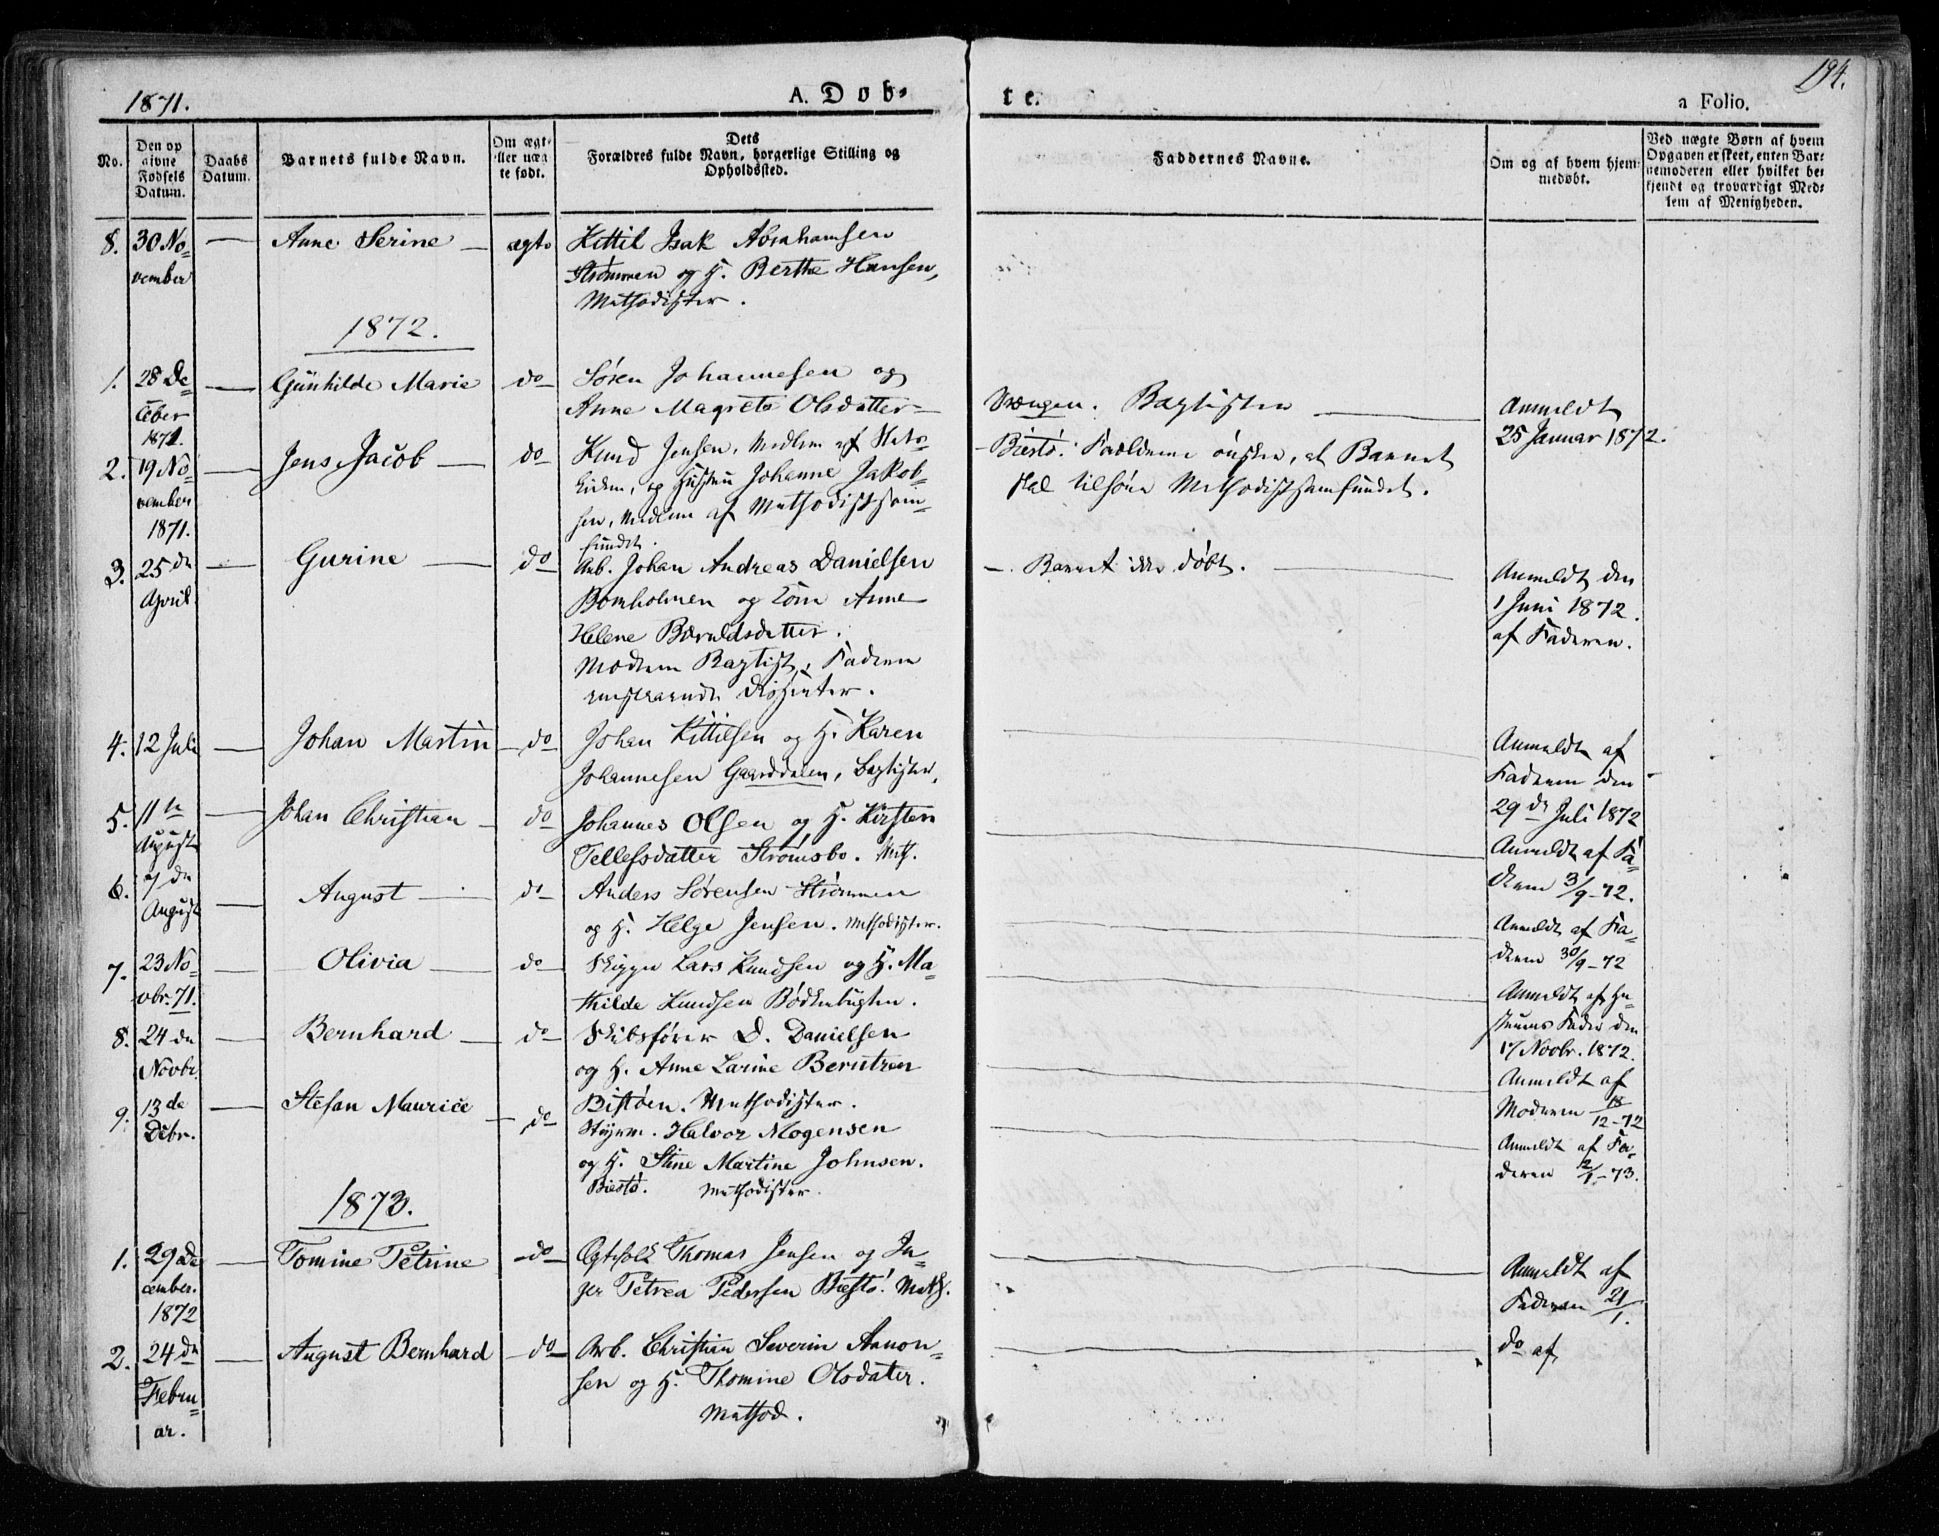 1871.
A. Døb-
te.
a Folio.
194.
No.
Den op
givne
Fødsels
Datum.
Daabs
Datum.
Barnets fulde Navn.
Om ægte
eller uæg
te født.
Dets
Forældres fulde Navn, borgerlige Stilling og
Opholdssted.
Faddernes Navne.
Om og af hvem hjem-
medøbt.
Ved uægte Børn af hvem
Opgaven er skeet, enten Bar-
nemoderen eller hvilket be-
kjendt og troværdigt Med-
lem af Menigheden.
8. 30 No-
vember
Anne Serine
ægte
Kittil Isak Abrahamsen
Strømmen og H. Berthe Hansen,
Methodister.
1872.
1. 28 De-
ceber
1871.
Günhilde Marie
do
Søren Johannesen og
Anne Magrete Olsdatter
Vrængen. Baptister
Anmeldt
25 Januar 1872.
2. 19 No-
vember
1871.
Jens Jacob
do
Knud Jensen, Medlem af Stats-
kirken, og Hustru Johanne Jakob-
sen, Medlem af Methodistsam-
fundet.
Biestø. Forældrene ønsker, at Barnet
skal tilhøre Methodistsamfundet.
3. 25 de
April
Gurine
do
Arb. Johan Andreas Danielsen
Bomholmen og Kone Anne
Helene Baruldsdatter.
Moderen Baptist, Faderen
Dissenter.
Barnet ikke døbt.
Anmeldt den
1 Juni 1872.
af Faderen.
4. 12 Juli
Johan Martin
do
Johan Kittilsen og H. Karen
Johannesen Gaarddalen, Baptister.
Anmeldt af
Faderen den
29 de Juli 1872
5. 11 te
August
Johan Christian
do
Johannes Olsen og H. Kirsten
Tellefsdatter Strømsbo. Meth.
Anmeldt af Fa-
deren 3/9-72.
6. 7 de
August
August
do
Anders Sørensen Strømmen
og H. Helge Jensen. Methodister.
Anmeldt af Fa-
deren 30/9-72
7. 23 No-
vbr. 71.
Olivia
do
Skipper Lars Knudsen og H. Ma-
thilde Knudsen Bødkerbugten.
Anmeldt af Hu-
struens Fader den
17 Novbr. 1872.
8. 24 de
Novbr.
Bernhard
do
Skibsfører D. Danielsen
og H. Anne Larine Berntzen
Bistøen. Methodister.
Anmeldt af
Moderen 18/12-72
9. 13 de
Debr.
Stefan Maurice
do
Styrm. Halvor Mogensen
og H. Stine Martine Johnsen.
Biestø. Methodister.
Anmeldt af Fa-
deren 12/1-73.
1873.
1. 29 De-
cember.
1872
Tomine Petrine
do
Ægtefolk Thomas Jensen og In-
ger Petrea Pedersen Biestø. Meth.
Anmeldt af
Faderen 21/1.
2. 24 de
Febru-
ar.
August Bernhard
do
Arb. Christian Severin Aanon-
sen og H. Thomine Olsdater.
Method.
do af